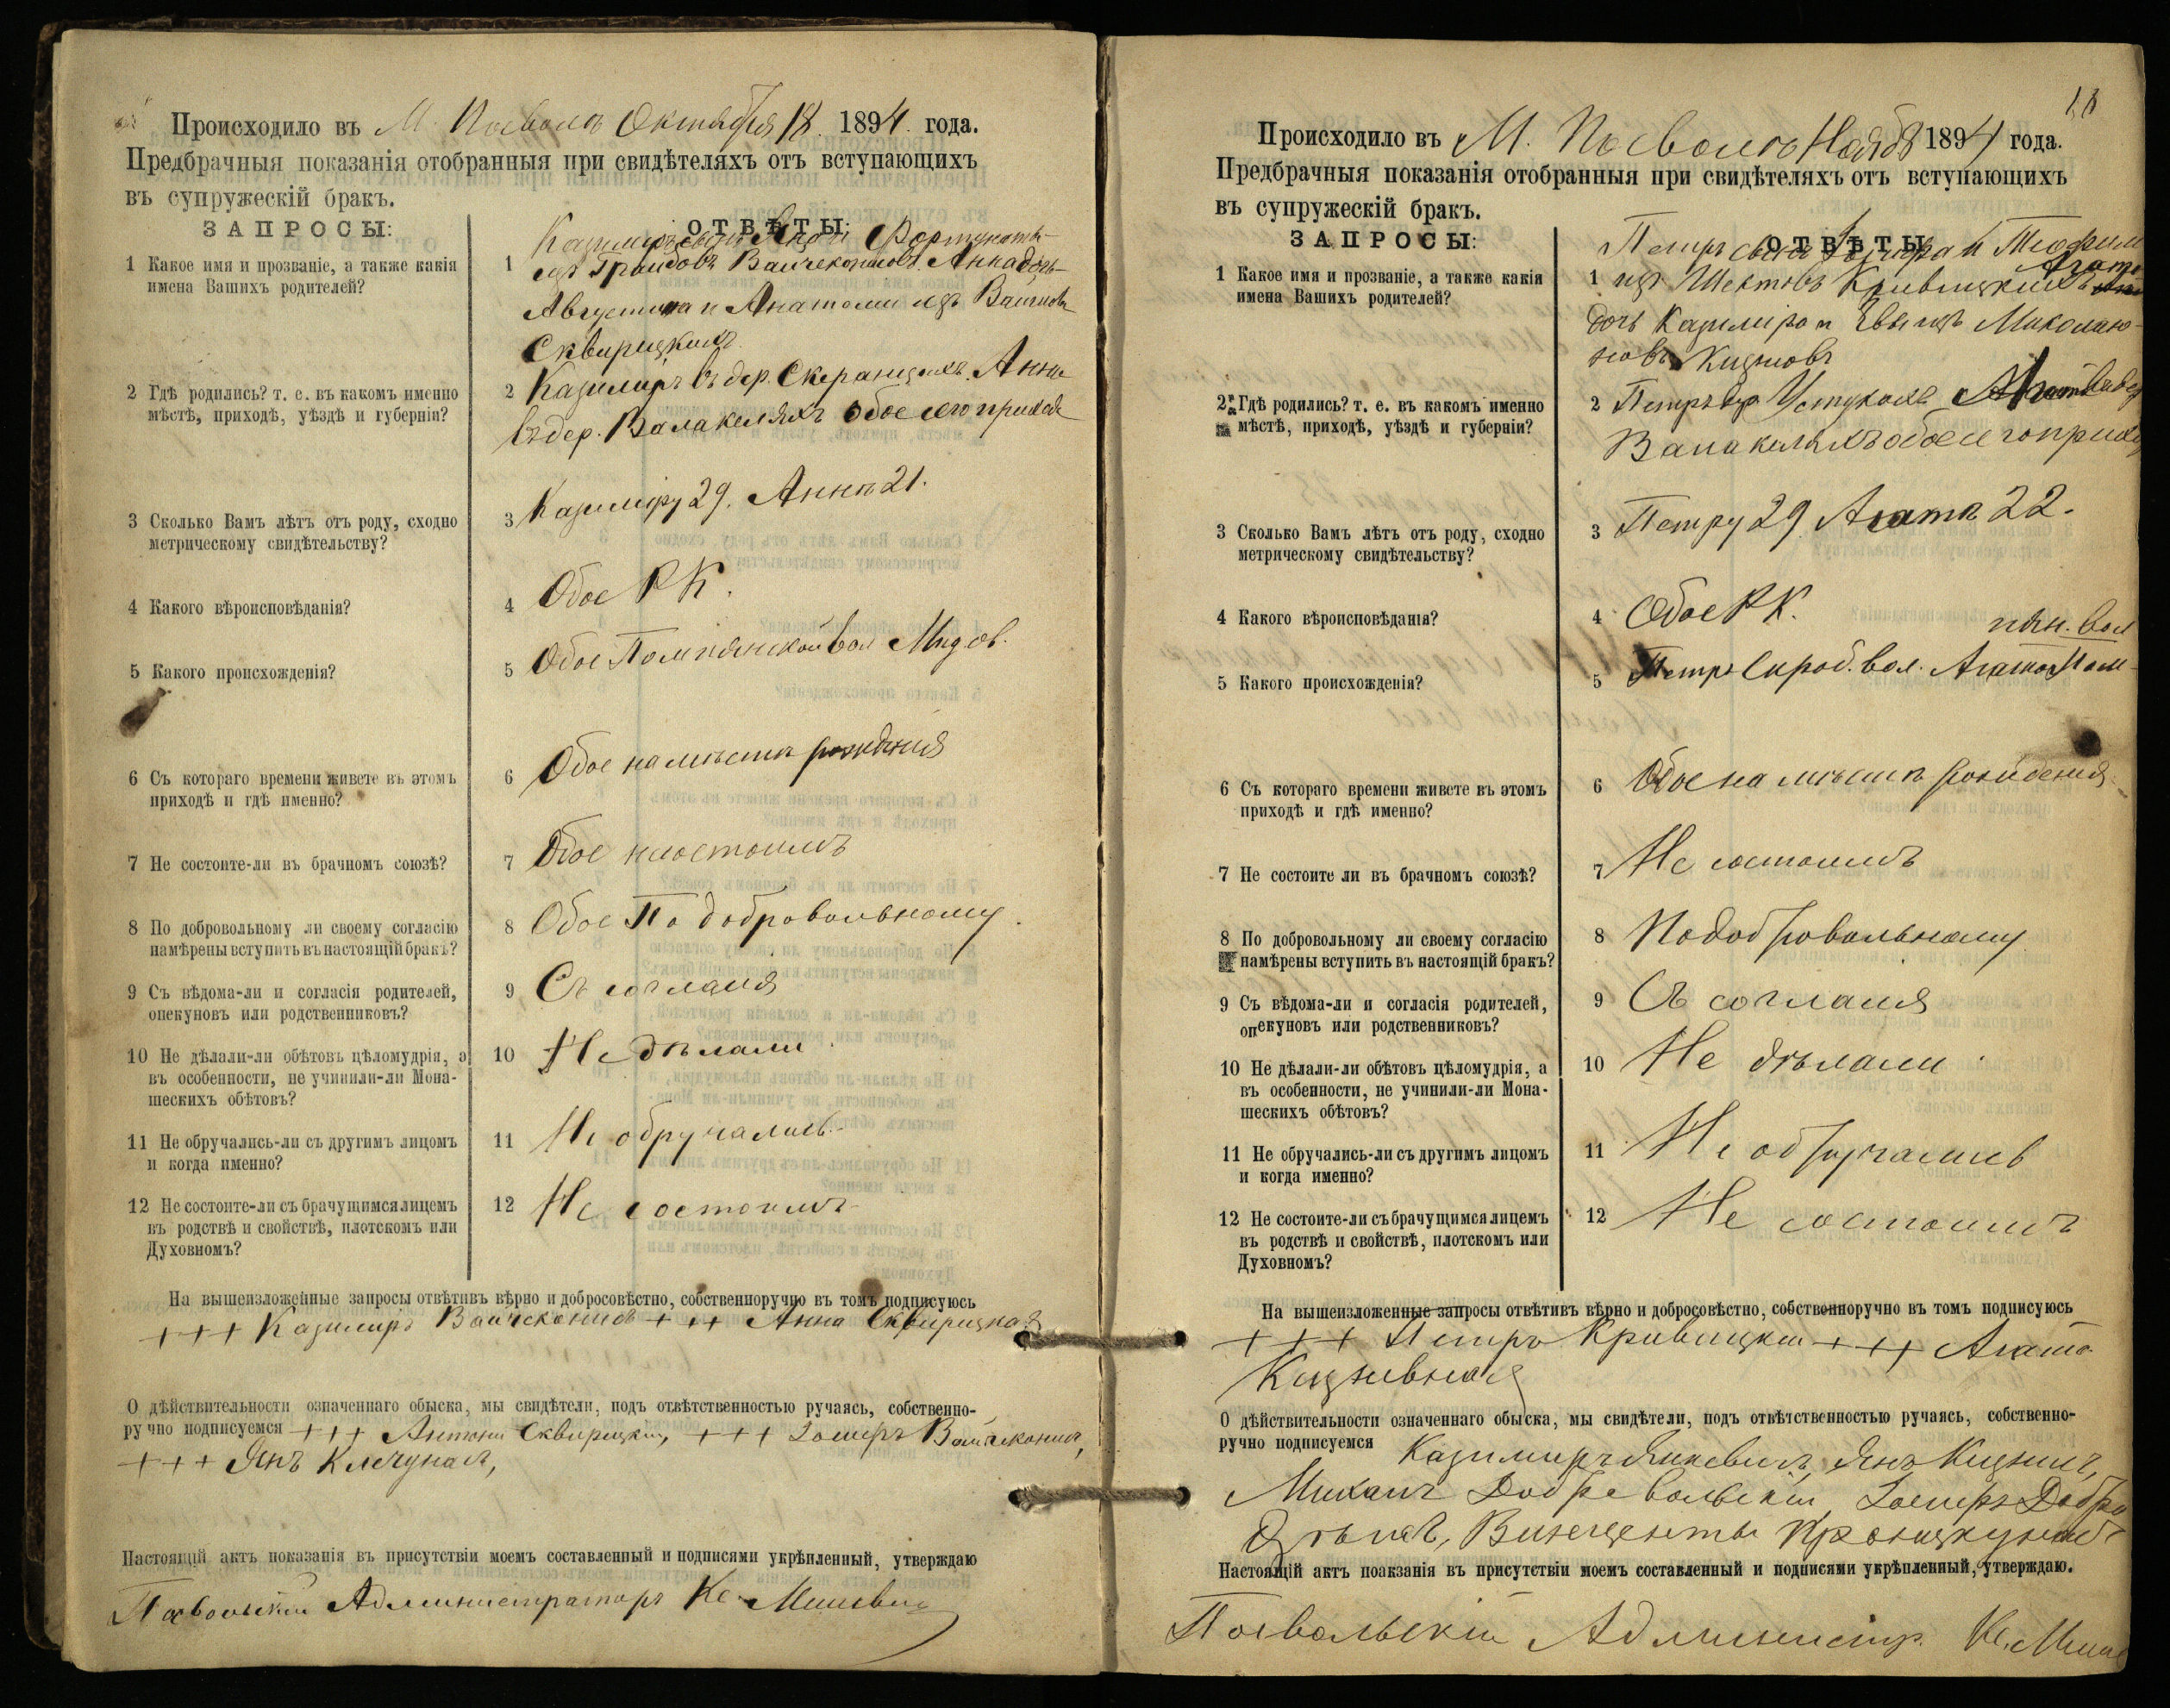 Происходило въ М. Посволѣ Октября 18. 1894. года.
Предбрачныя показанія отобранныя при свидѣтеляхъ отъ вступающихъ
въ супружескій бракъ.
ЗАПРОСЫ: ОТВѢТЫ:
1 Какое имя и прозваніе, а также какія
имена Вашихъ родителей?
1 Казимиръ сынъ и
изъ Анна дочь
Августина и Анатоліи изъ
Сквирецкихъ
2 Гдѣ родились? т. е. въ какомъ именно
мѣстѣ, приходѣ, уѣздѣ и губерніи?
2 Казимиръ въ дер. Анна
въ дер. Валакеляхъ обое сего прихода
3 Сколько Вамъ лѣтъ отъ роду, сходно
метрическому свидѣтельству?
3 Казимиру 29. Аннѣ 21.
4 Какого вѣроисповѣданія?
4 Обое РК.
5 Какого происхожденія?
5 Обое Помпянской вол
6 Съ котораго времени живете въ этомъ
приходѣ и гдѣ именно?
6 Обое на мѣстѣ рожденія
7 Не состоите-ли въ брачномъ союзѣ?
7 Обое несостоимъ
8 По добровольному ли своему согласію
намѣрены вступить въ настоящій бракъ?
8 Обое По добровольному.
9 Съ вѣдома-ли и согласія родителей,
опекуновъ или родственниковъ?
9 Съ согласія
10 Не дѣлали-ли обѣтовъ цѣломудрія, а
въ особенности, не учинили-ли Мона-
шескихъ обѣтовъ?
10 Не дѣлали
11 Не обручались-ли съ другимъ лицомъ
и когда именно?
11 Не обручались
12 Не состоите-ли съ брачущимся лицемъ
въ родствѣ и свойствѣ, плотскомъ или
Духовномъ?
12 Не состоимъ
На вышеизложенные запросы отвѣтивъ вѣрно и добросовѣстно, собственноручно въ томъ подписуюсь
+++ Казимиръ +++ Анна Сквирецкая
О дѣйствительности означеннаго обыска, мы свидѣтели, подъ отвѣтственностью ручаясь, собственно-
ручно подписуемся +++ Антони Сквирецкій, +++
+++ Янъ
Настоящій актъ показанія въ присутствіи моемъ составленный и подписями укрѣпленный, утверждаю
Посвольскій Администраторъ Кс.
Происходило въ М. Посволѣ 1894 года.
Предбрачныя показанія отобранныя при свидѣтеляхъ отъ вступающихъ
въ супружескій бракъ.
ЗАПРОСЫ: ОТВѢТЫ
1 Какое имя и прозваніе, а также какія
имена Вашихъ родителей?
Петръ сынъ и
1 изъ Кривицкихъ
дочь Казимира и Евы изъ
2 Гдѣ родились? т. е. въ какомъ именно
мѣстѣ, приходѣ, уѣздѣ и губерніи?
2 Петръ
Валакеляхъ обое сего прихо
3 Сколько Вамъ лѣтъ отъ роду, сходно
метрическому свидѣтельству?
3 Петру 29 Агатѣ 22.
4 Какого вѣроисповѣданія?
4 Обое РК.
5 Какого происхожденія?
пян. вол
5 Петръ вол. Агата Помп-
6 Съ котораго времени живете въ этомъ
приходѣ и гдѣ именно?
6 Обое на мѣстѣ рожденія
7 Не состоите ли въ брачномъ союзѣ?
7 Не состоимъ
8 По добровольному ли своему согласію
намѣрены вступить въ настоящій бракъ?
8 По добровольному
9 Съ вѣдома-ли и согласія родителей,
опекуновъ или родственниковъ?
9 Съ согласія
10 Не дѣлали-ли обѣтовъ цѣломудрія, а
въ особенности, не учинили-ли Мона-
шескихъ обѣтовъ?
10 Не дѣлали
11 Не обручались-ли съ другимъ лицомъ
и когда именно?
11 Не обручались
12 Не состоите-ли съ брачущимся лицемъ
въ родствѣ и свойствѣ, плотскомъ или
Духовномъ?
12 Не состоимъ
На вышеизложенные запросы отвѣтивъ вѣрно и добросовѣстно, собственноручно въ томъ подписуюсь
+++ Петръ Кривицкій +++ Агата
О дѣйствительности означеннаго обыска, мы свидѣтели, подъ отвѣтственностью ручаясь, собственно-
ручно подписуемся Казимиръ Янкевичъ, Янъ
Михаилъ Добровольскій
Настоящій актъ поакзанія въ присутствіи моемъ составленный и подписями укрѣпленный, утверждаю.
Посвольскій Администр. Кс.